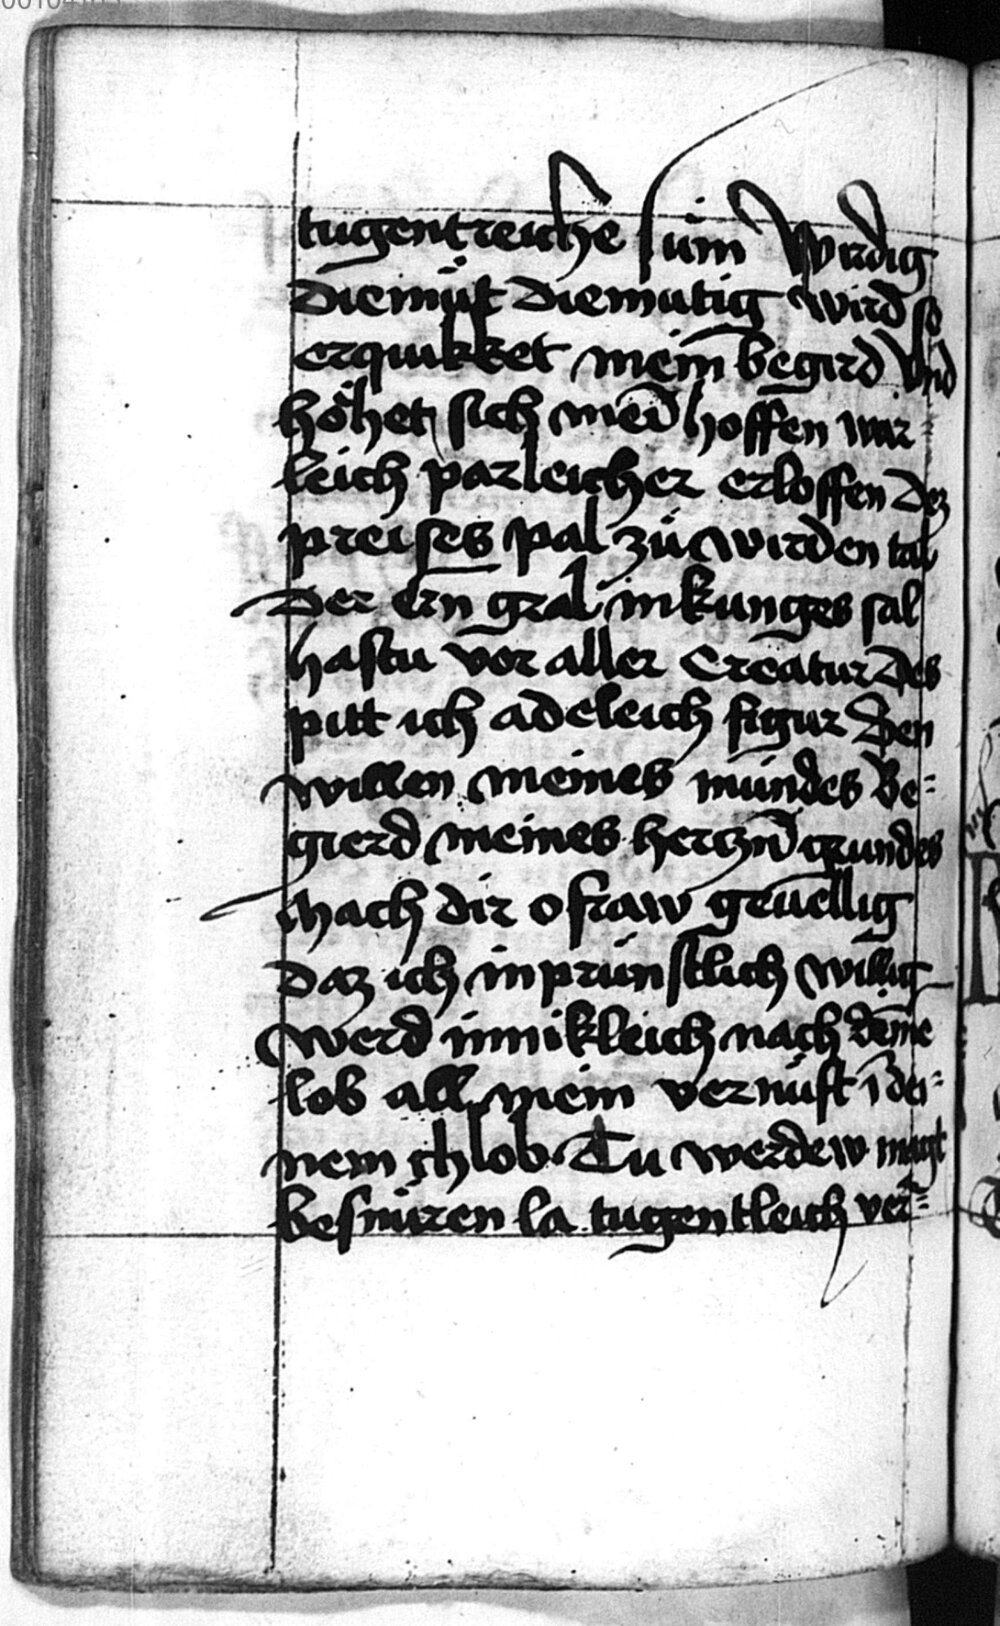 tugentreiche sum̈ Wirdig
diemüt diemutig wird so
erquikket mein̄ begird vnd
höhet sich meī hoffen wir=
leich parleicher erloffen dez
preises pal zü wirden tal
der ern gral in kunges sal
hastu vor aller Creatur des
pitt ich adeleich figur den
willen meines mundes Be=
gierd meines hertzn̄ grundes
Mach dir o fraw geuellig
daz ich inprünstlich willig
werd innikleich nach deine
lob all mein vernuft ī dei=
nem chlob Du werdew magt
besnüren la tugentleich ver=